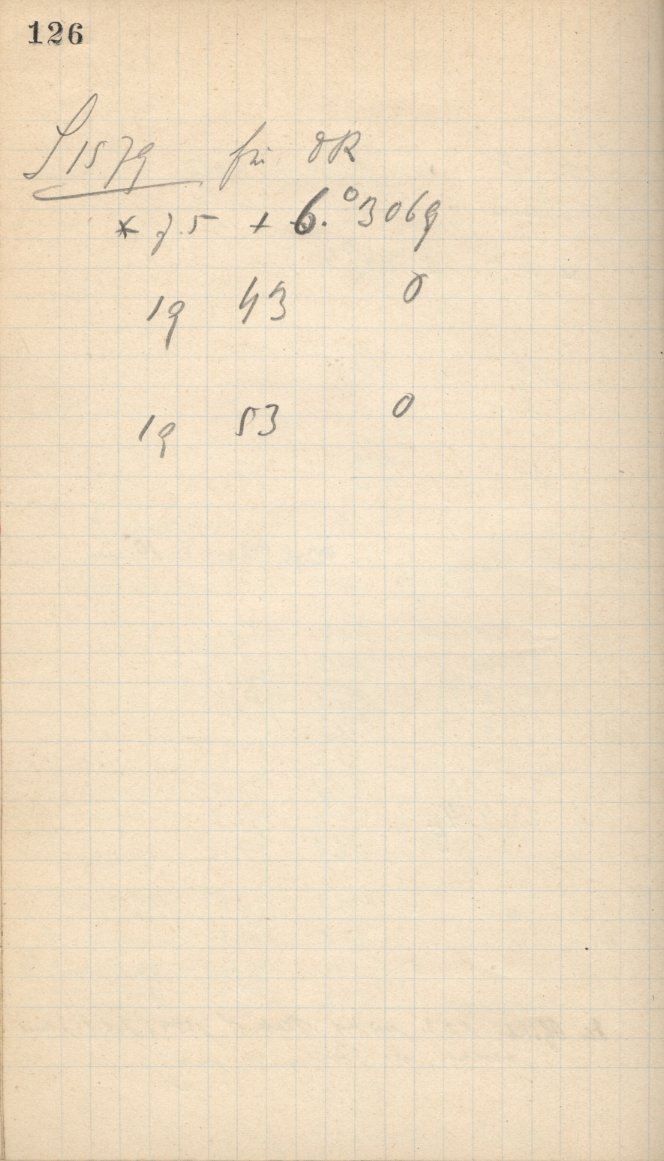 126
S 1579 für δR
* 7.5 + 6.°3069
19 43 0
19 53 0